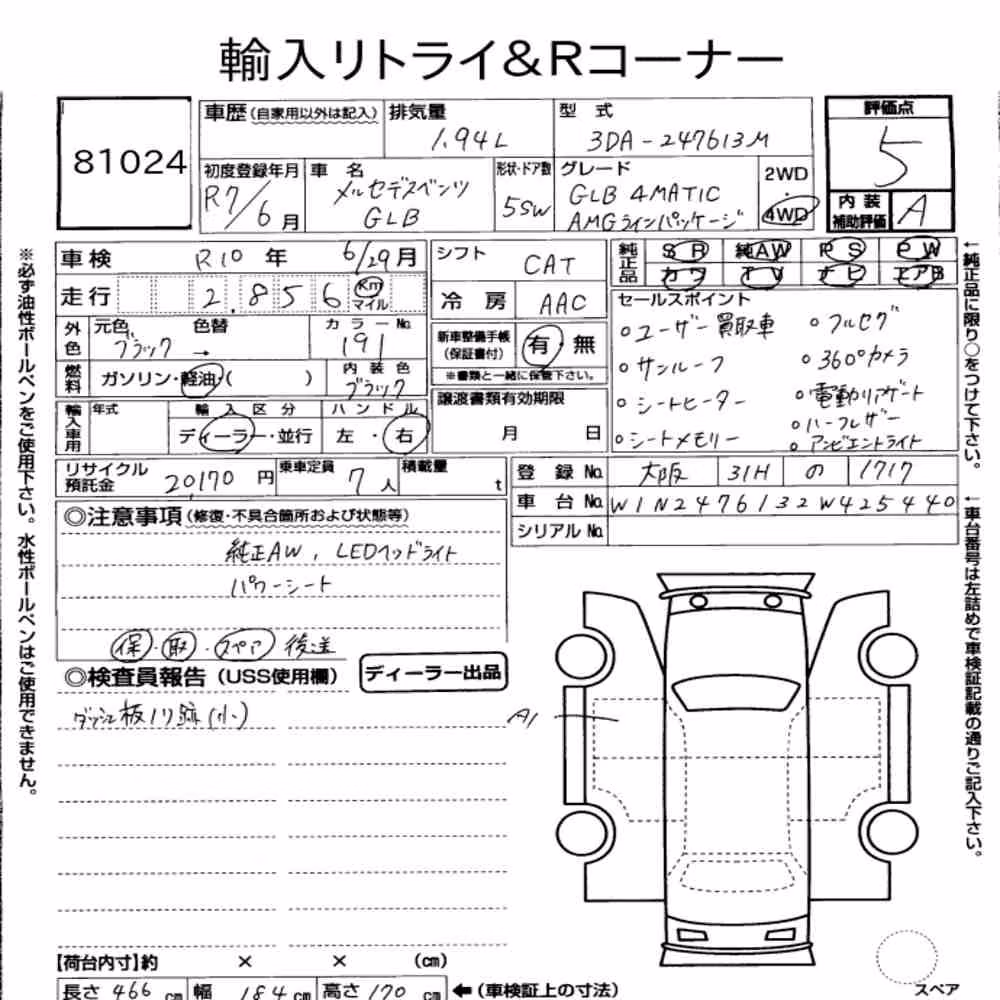 輸入リトライ&Rコーナー
81024
車歴(自家用以外は記入) 排気量 1.94L 型式 3DA-247613M
評価点 5
初度登録年月 R7/6月 車名 メルセデスベンツ GLB
形状・ドア数 5SW グレード GLB 4MATIC AMGラインパッケージ 2WD・4WD
内装補助評価 A
車検 R10年 6/29月 シフト CAT
走行 2,856 Km マイル 冷房 AAC
外色 元色 ブラック 色替 → カラーNo. 191
燃料 ガソリン・軽油・( ) 内装色 ブラック
新車整備手帳(保証書付) 有・無
※書類と一緒に保管下さい。
輸入車用 年式 輸入区分 ディーラー・並行 ハンドル 左・右
譲渡書類有効期限 月 日
純正品 SR 純AW PS PW
カワ TV ナビ エアB
セールスポイント
○ユーザー買取車 ○フルセグ
○サンルーフ ○360°カメラ
○シートヒーター ○電動リアゲート
○ハーフレザー
○シートメモリー ○アンビエントライト
リサイクル預託金 20,170円 乗車定員 7人 積載量 t
登録No. 大阪 31H の 1717
車台No. W1N2476132W425440
シリアルNo.
◎注意事項(修復・不具合箇所および状態等)
純正AW, LEDヘッドライト
パワーシート
保・取・スペア 後送
◎検査員報告(USS使用欄) ディーラー出品
ダッシュ板ノリ跡(小)
A1
【荷台内寸】約 × × (cm)
長さ 466 cm 幅 184 cm 高さ 170 cm ←(車検証上の寸法)
スペア
※必ず油性ボールペンをご使用下さい。水性ボールペンはご使用できません。
←純正品に限り○をつけて下さい。
←車台番号は左詰めで車検証記載の通りご記入下さい。